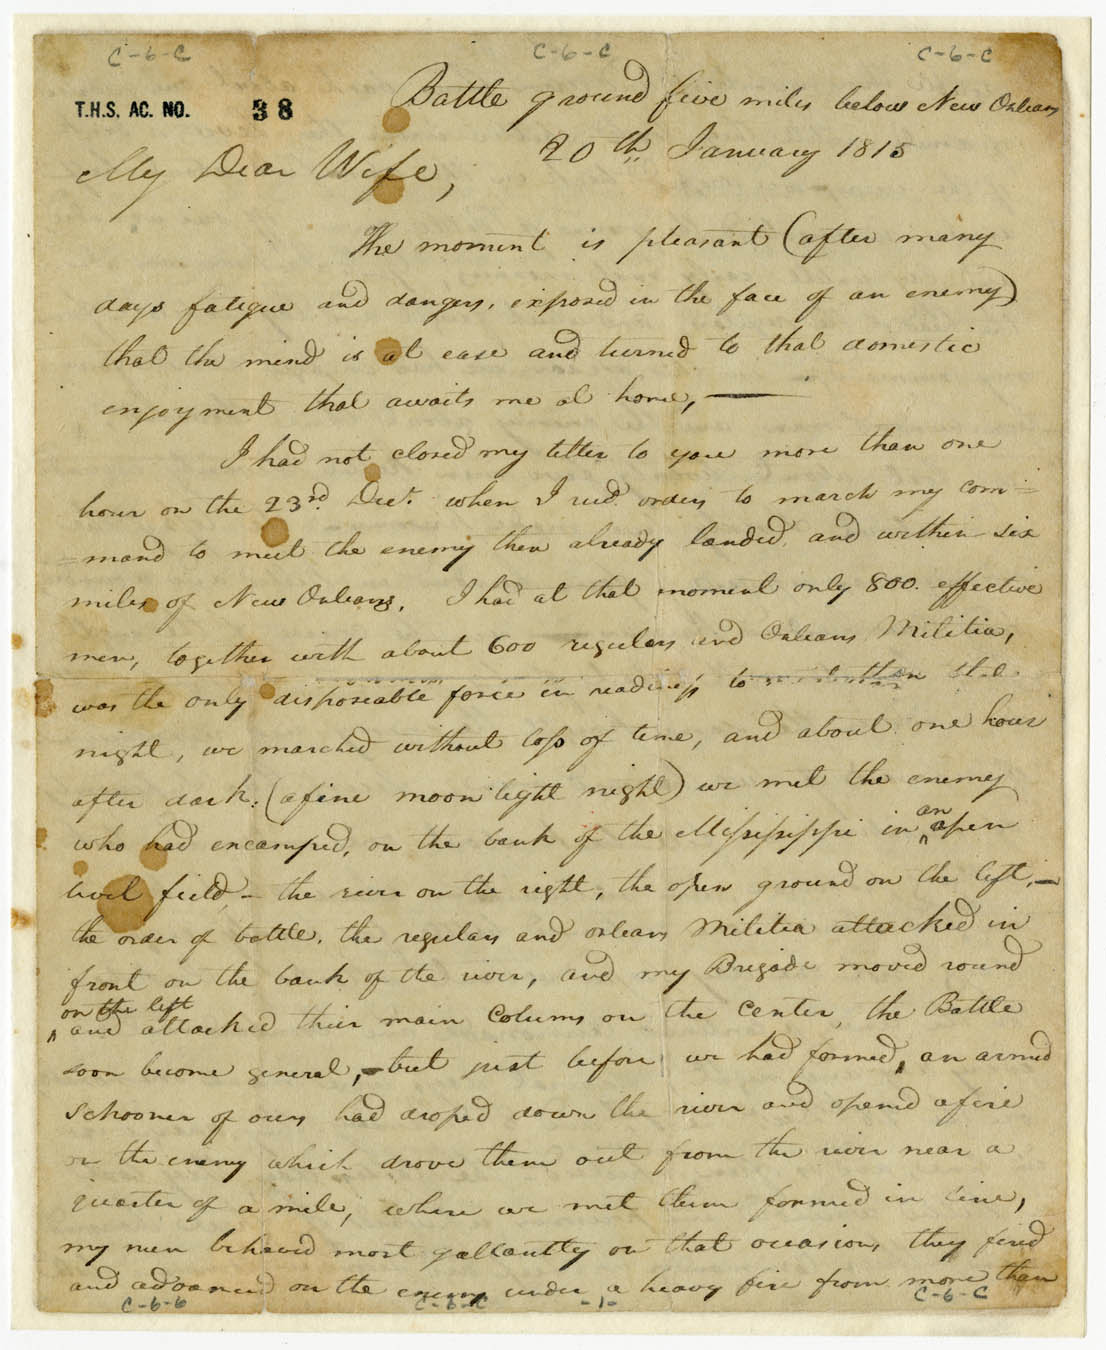 C-6-C C-6-C C-6-C
T.H.S. AC. NO. 38
Battle ground five miles below New Orleans
20th January 1815
My Dear Wife,
The moment is pleasant (after many
days fatigue and dangers, exposed in the face of an enemy)
that the mind is at ease and turned to that domestic
enjoyment that awaits me at home, —
I had not closed my letter to you more than one
hour on the 23rd. Decr. when I recd. orders to march my com=
=mand to meet the enemy then already landed, and within six
miles of New Orleans, I had at that moment only 800. effective
men, together with about 600 regulars and Orleans Militia,
was the only disposeable force in readiness to that
night, we marched without loss of time, and about one hour
after dark. (a fine moon light night) we met the enemy
who had encamped, on the bank of the Missisippi in an open
level field, - the river on the right, the open ground on the left, —
the order of battle. the regulars and orleans Militia attacked in
front on the bank of the river, and my Brigade moved round
on the left
and attacked their main Colums on the Center, the Battle
soon become general, - but just before we had formed, an armed
Schooner of ours had droped down the river and opened a fire
on the enemy which drove them out from the river near a
quarter of a mile, where we met them formed in line,
my men behaved most gallantly on that occasion, they fired
and advanced on the enemy under a heavy fire from more than
C-6-6 C-6-C -1- C-6-C